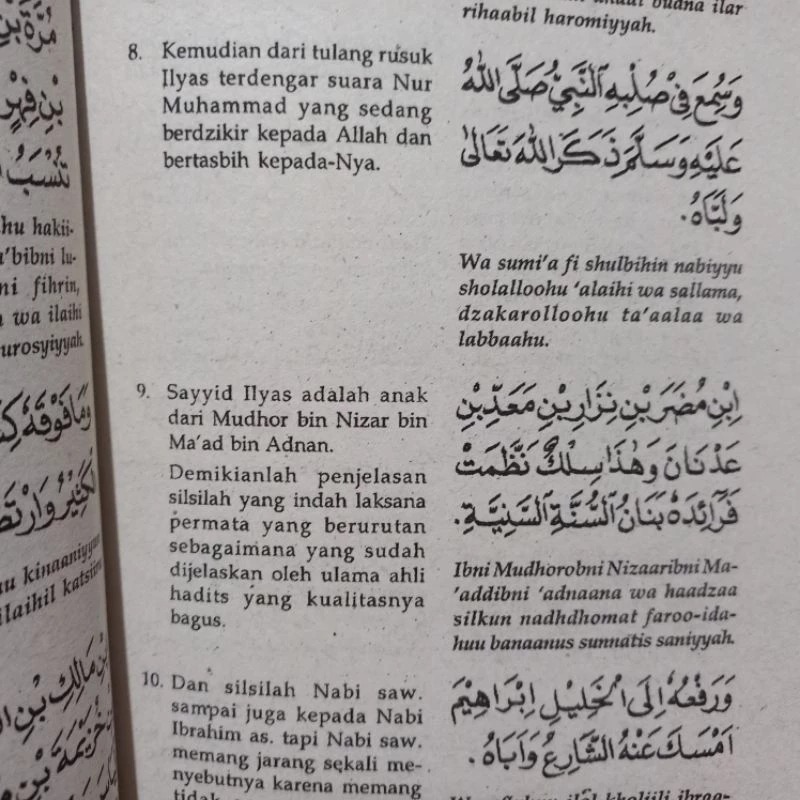 rihaabil haromiyyah.
8. Kemudian dari tulang rusuk
Ilyas terdengar suara Nur
Muhammad yang sedang
berdzikir kepada Allah dan
bertasbih kepada-Nya.
وَسُمِعَ فِيْ صُلْبِهِ النَّبِيُّ صَلَّى اللهُ
عَلَيْهِ وَسَلَّمَ ذَكَرَ اللهَ تَعَالَى
وَلَبَّاهُ.
Wa sumi'a fi shulbihin nabiyyu
sholalloohu 'alaihi wa sallama,
dzakarolloohu ta'aalaa wa
labbaahu.
9. Sayyid Ilyas adalah anak
dari Mudhor bin Nizar bin
Ma'ad bin Adnan.
Demikianlah penjelasan
silsilah yang indah laksana
permata yang berurutan
sebagaimana yang sudah
dijelaskan oleh ulama ahli
hadits yang kualitasnya
bagus.
ابْنِ مُضَرَ بْنِ نِزَارِ بْنِ مَعَدِّ بْنِ
عَدْنَانَ وَهٰذَا سِلْكٌ نَظَّمَتْ
فَرَائِدَهُ بَنَانُ السُّنَّةِ السَّنِيَّةِ.
Ibni Mudhorobni Nizaaribni Ma-
'addibni 'adnaana wa haadzaa
silkun nadhdhomat faroo-ida-
huu banaanus sunnatis saniyyah.
10. Dan silsilah Nabi saw.
sampai juga kepada Nabi
Ibrahim as. tapi Nabi saw.
memang jarang sekali me-
nyebutnya karena memang
وَرَفْعُهُ اِلَى الْخَلِيْلِ اِبْرَاهِيْمَ
اَمْسَكَ عَنْهُ الشَّارِعُ وَاَبَاهُ.
hu hakii-
'bibni lu-
ni fihrin,
wa ilaihi
urosyiyyah
وَمَا فَوْقَهُ
kinaaniyyun
ilaihil katsiiru